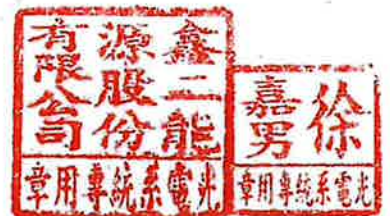 鑫二能
源股份
有限公司
光電系統專用章
徐
嘉男
光電系統專用章